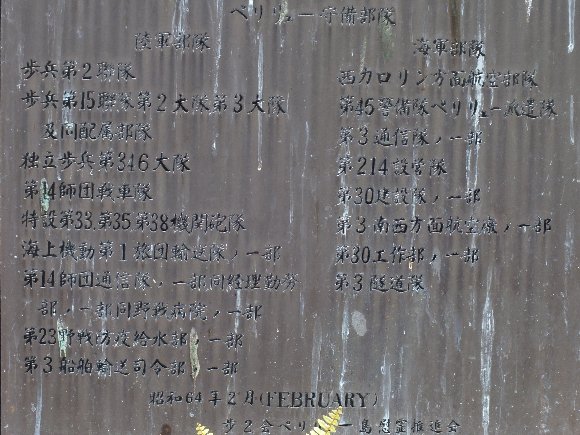 ペリリュー守備部隊
陸軍部隊
歩兵第2聯隊
歩兵第15聯隊第2大隊第3大隊
及同配属部隊
独立歩兵第346大隊
第14師団戦車隊
特設第33.第35.第38機関砲隊
海上機動第1旅団輸送隊ノ一部
第14師団通信隊ノ一部同経理勤務
部ノ一部同野戦病院ノ一部
第23野戦防疫給水部ノ一部
第3船舶輸送司令部ノ一部
海軍部隊
西カロリン方面航空部隊
第45警備隊ペリリュー派遣隊
第3通信隊ノ一部
第214設営隊
第30建設隊ノ一部
第3南西方面航空廠ノ一部
第30工作部ノ一部
第3隧道隊
昭和64年2月(FEBRUARY)
歩2会ペリリュー島慰霊推進会